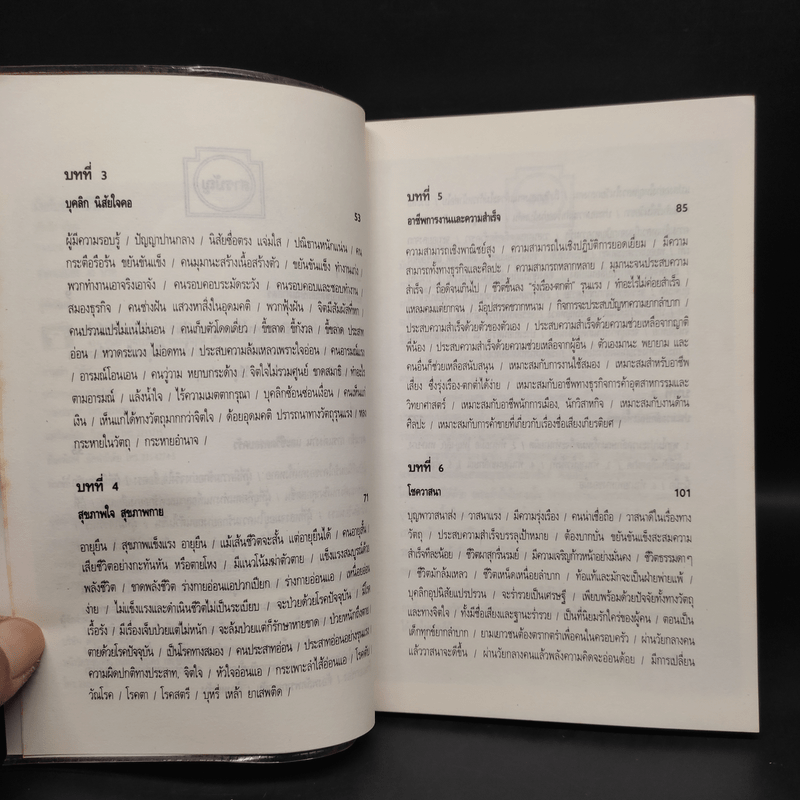 บทที่ 3
บุคลิก นิสัยใจคอ
53
ผู้มีความรอบรู้ / ปัญญาปานกลาง / นิสัยซื่อตรง แจ่มใส / ปณิธานหนักแน่น / คน
กระตือรือร้น ขยันขันแข็ง / คนมุมานะสร้างเนื้อสร้างตัว / ขยันขันแข็ง ทำงานเก่ง /
พวกทำงานเอาจริงเอาจัง / คนรอบคอบระมัดระวัง / คนรอบคอบและชอบทำงาน /
สมองธุรกิจ / คนช่างฝัน แสวงหาสิ่งในอุดมคติ / พวกฟุ้งฝัน / จิตมีสัมผัสที่หก /
คนปรวนแปรไม่แน่ไม่นอน / คนเก็บตัวโดดเดี่ยว / ขี้ขลาด ขี้กังวล / ขี้ขลาด ประสาท
อ่อน / หวาดระแวง ไม่อดทน / ประสบความล้มเหลวเพราะใจอ่อน / คนอารมณ์แรง
/ อารมณ์โอนเอน / คนวู่วาม หยาบกระด้าง / จิตใจไม่รวมศูนย์ ขาดสมาธิ / ทำอะไร
ตามอารมณ์ / แล้งน้ำใจ / ไร้ความเมตตากรุณา / บุคลิกซ้อนซ่อนเงื่อน / คนเห็นแก่
เงิน / เห็นแก่ได้ทางวัตถุมากกว่าจิตใจ / ด้อยอุดมคติ ปรารถนาทางวัตถุรุนแรง /
กระหายในวัตถุ / กระหายอำนาจ /
บทที่ 4
สุขภาพใจ สุขภาพกาย
71
อายุยืน / สุขภาพแข็งแรง อายุยืน / แม้เส้นชีวิตจะสั้น แต่อายุยืนได้ / คนอายุสั้น /
เสียชีวิตอย่างกะทันหัน หรือตายโหง / มีแนวโน้มฆ่าตัวตาย / แข็งแรงสมบูรณ์ด้วย
พลังชีวิต / ขาดพลังชีวิต ร่างกายอ่อนแอปวกเปียก / ร่างกายอ่อนแอ / เหนื่อยอ่อน
ง่าย / ไม่แข็งแรงและดำเนินชีวิตไม่เป็นระเบียบ / จะป่วยด้วยโรคปัจจุบัน / มีโรค
เรื้อรัง / มีเรื่องเจ็บป่วยแต่ไม่หนัก / จะล้มป่วยแต่ก็รักษาหายขาด / ป่วยหนักถึงตาย
ตายด้วยโรคปัจจุบัน / เป็นโรคทางสมอง / คนประสาทอ่อน / ประสาทอ่อนอย่างรุนแรง
ความผิดปกติทางประสาท, จิตใจ / หัวใจอ่อนแอ / กระเพาะลำไส้อ่อนแอ / โรคตับ
วัณโรค / โรคตา / โรคสตรี / บุหรี่ เหล้า ยาเสพติด /
บทที่ 5
อาชีพการงานและความสำเร็จ
85
ความสามารถเชิงพาณิชย์สูง / ความสามารถในเชิงปฏิบัติการยอดเยี่ยม / มีความ
สามารถทั้งทางธุรกิจและศิลปะ / ความสามารถหลากหลาย / มุมานะจนประสบความ
สำเร็จ / ถือดีจนเกินไป / ชีวิตขึ้นลง "รุ่งเรือง-ตกต่ำ" รุนแรง / ทำอะไรไม่ค่อยสำเร็จ /
แหลมคมแต่ยากจน / มีอุปสรรคขวากหนาม / กิจการจะประสบปัญหาความยากลำบาก /
ประสบความสำเร็จด้วยตัวของตัวเอง / ประสบความสำเร็จด้วยความช่วยเหลือจากญาติ
พี่น้อง / ประสบความสำเร็จด้วยความช่วยเหลือจากผู้อื่น / ตัวเองมานะ พยายาม และ
คนอื่นก็ช่วยเหลือสนับสนุน / เหมาะสมกับการงานใช้สมอง / เหมาะสมสำหรับอาชีพ
เสี่ยง ซึ่งรุ่งเรือง-ตกต่ำได้ง่าย / เหมาะสมกับอาชีพทางธุรกิจการค้าอุตสาหกรรมและ
วิทยาศาสตร์ / เหมาะสมกับอาชีพนักการเมือง, นักวิสาหกิจ / เหมาะสมกับงานด้าน
ศิลปะ / เหมาะสมกับการค้าขายที่เกี่ยวกับเรื่องชื่อเสียงเกียรติยศ /
บทที่ 6
โชควาสนา
101
บุญพาวาสนาส่ง / วาสนาแรง / มีความรุ่งเรือง / คนน่าเชื่อถือ / วาสนาดีในเรื่องทาง
วัตถุ / ประสบความสำเร็จบรรลุเป้าหมาย / ต้องบากบั่น ขยันขันแข็งสะสมความ
สำเร็จทีละน้อย / ชีวิตผาสุกรื่นรมย์ / มีความเจริญก้าวหน้าอย่างมั่นคง / ชีวิตธรรมดาๆ
/ ชีวิตมักล้มเหลว / ชีวิตเหน็ดเหนื่อยลำบาก / ท้อแท้และมักจะเป็นฝ่ายพ่ายแพ้ /
บุคลิกอุปนิสัยแปรปรวน / จะร่ำรวยเป็นเศรษฐี / เพียบพร้อมด้วยปัจจัยทั้งทางวัตถุ
และทางจิตใจ / ทั้งมีชื่อเสียงและฐานะร่ำรวย / เป็นที่นิยมรักใคร่ของผู้คน / ตอนเป็น
เด็กทุกข์ยากลำบาก / ยามเยาวชนต้องตรากตรำเพื่อคนในครอบครัว / ผ่านวัยกลางคน
แล้ววาสนาจะดีขึ้น / ผ่านวัยกลางคนแล้วพลังความคิดจะอ่อนด้อย / มีการเปลี่ยน